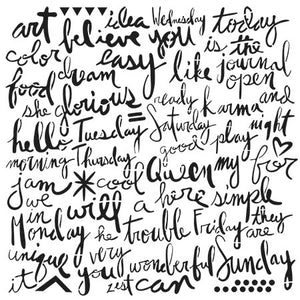 art idea Wednesday today
believe you is the
color easy like journal
food dream open
she glorious ready karma and
hello Tuesday Saturday play night
morning Thursday good
jam cool Queen my for
we will a here simple
in
Monday he trouble Friday they are
unique very
it you wonderful Sunday
zest can